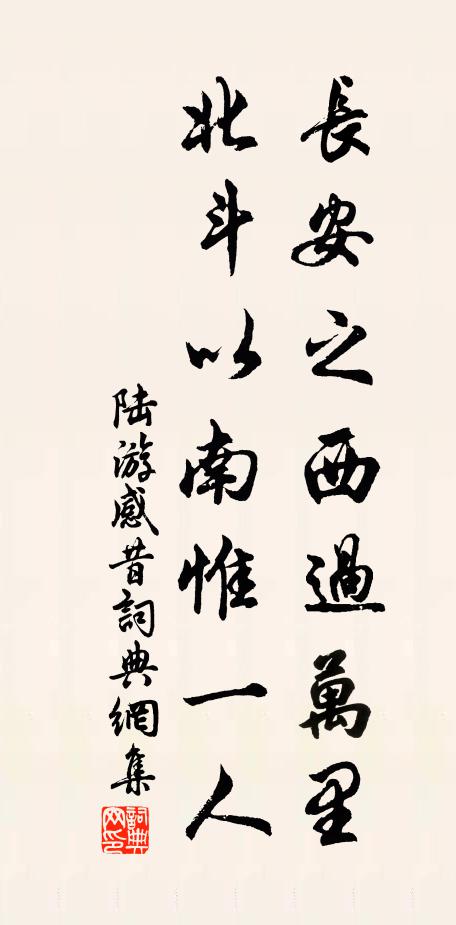 長安之西過萬里
北斗以南惟一人
陆游感昔詞典網集
詞典
网印